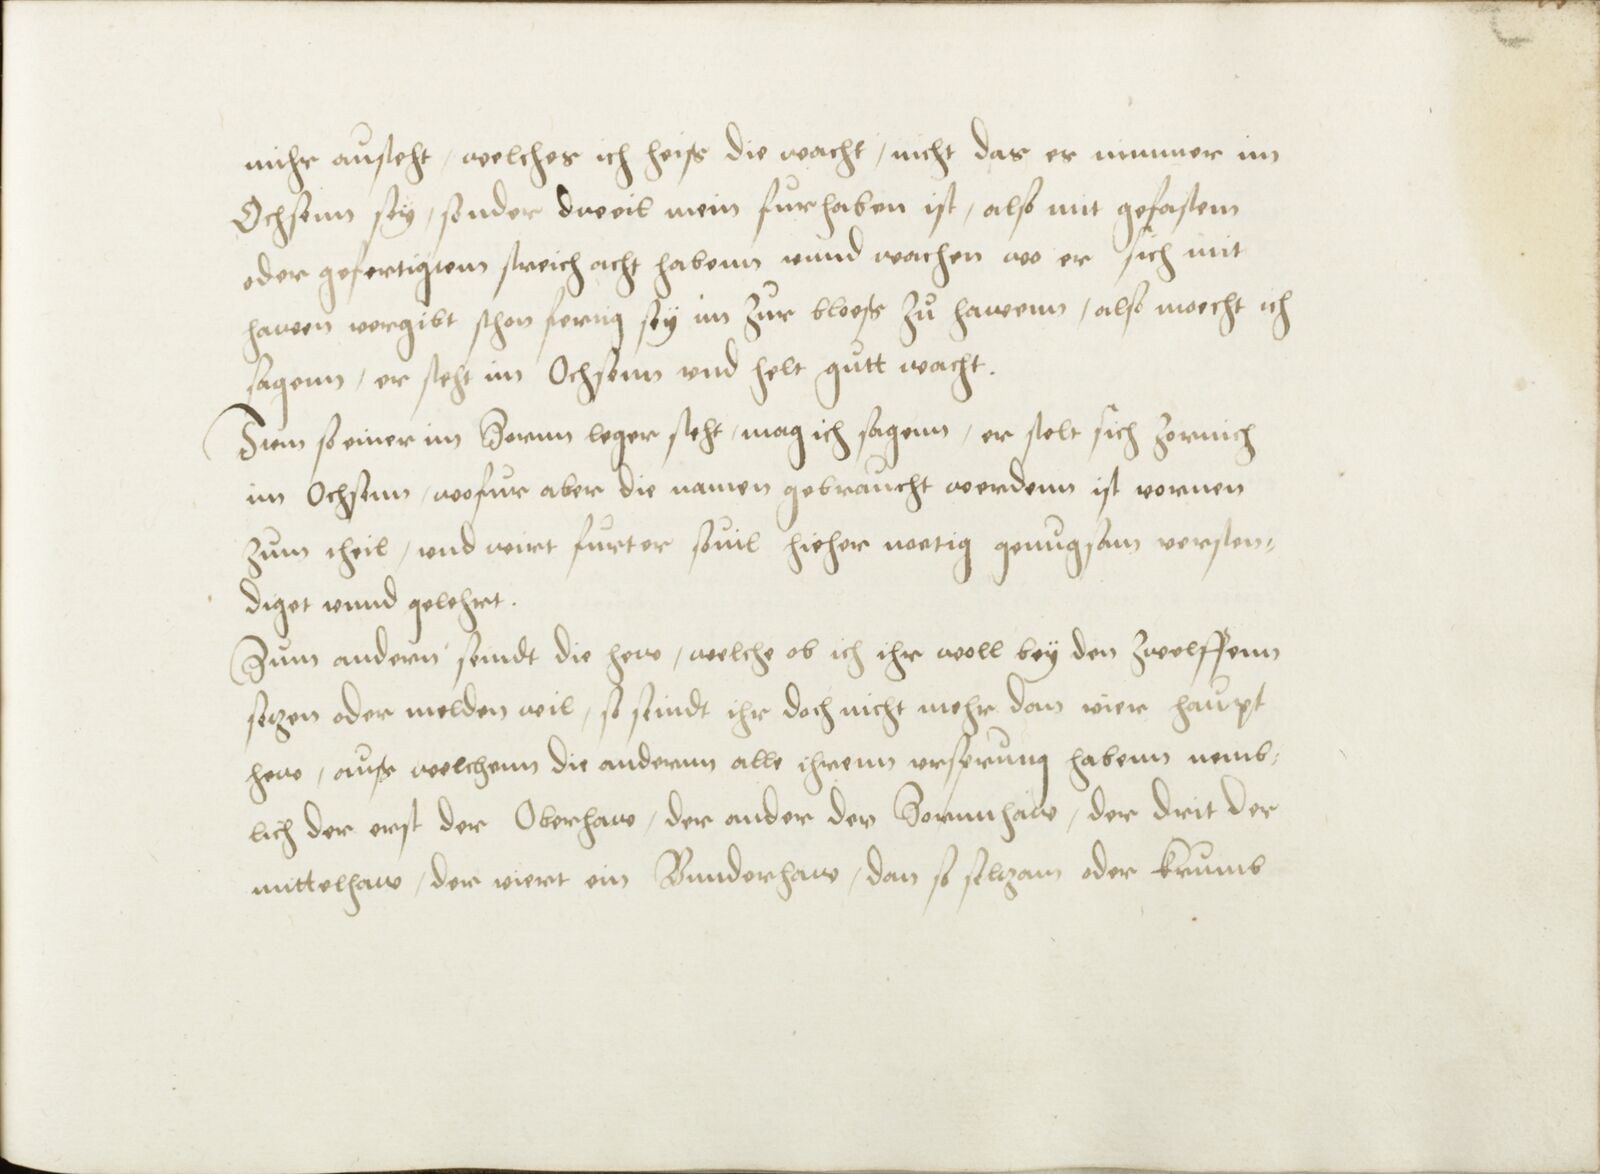 mihr ansteht / welches ich heiss die wacht / nicht das er immer im
Ochsenn seÿ / sonder dweil mein furhaben ist / also mit gefastem
oder gefertigtem streich acht habenn vnnd wachen wo er sich mit
hawen vergibt schon fertig seÿ im zur bloess zu hawenn / also moecht ich
sagenn / er steht im Ochsenn vnd helt gutt wacht.
Item so einer im Zornn leger steht / mag ich sagenn / er stelt sich zornich
im Ochsenn / wofur aber die namen gebraucht werdenn ist vornen
zum theil / vnd wirt furter souil hieher noetig genugsam versten-
diget vnnd gelehrt.
Zum andern seindt die hew / welche ob ich ihr woll beÿ den zwelffenn
setzen oder melden wil / so seindt ihr doch nicht mehr dan vier haupt
hew / auss welchenn die anderen alle ihrenn vrsprung habenn nemb-
lich der erst der Oberhaw / der ander der Zornnhaw / der drit der
mittelhaw / der viert ein Vnnderhaw / dan so seltzam oder krumb